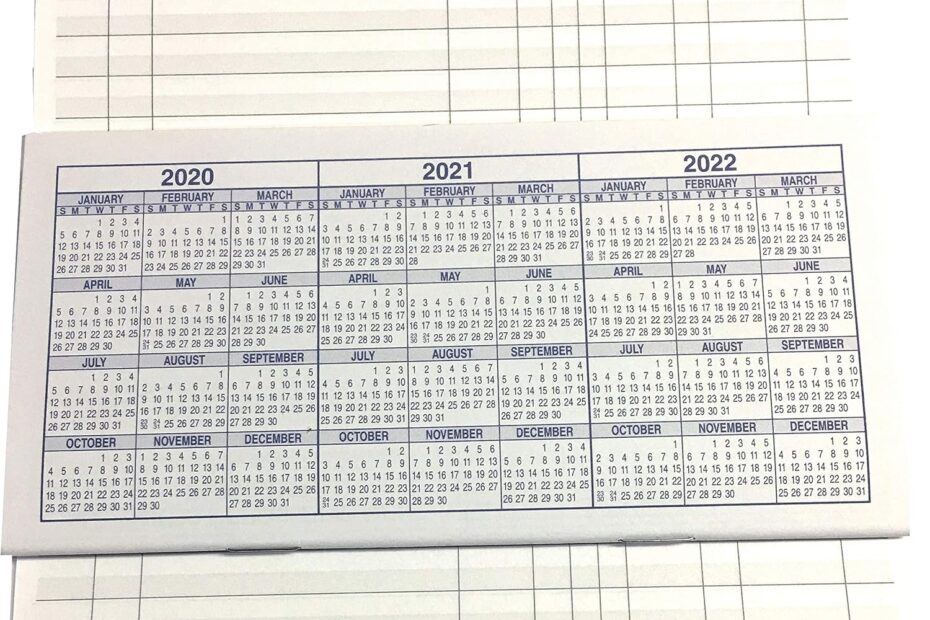 2020
JANUARY
S M T W T F S
1 2 3 4
5 6 7 8 9 10 11
12 13 14 15 16 17 18
19 20 21 22 23 24 25
26 27 28 29 30 31
FEBRUARY
S M T W T F S
1
2 3 4 5 6 7 8
9 10 11 12 13 14 15
16 17 18 19 20 21 22
23 24 25 26 27 28 29
MARCH
S M T W T F S
1 2 3 4 5 6 7
8 9 10 11 12 13 14
15 16 17 18 19 20 21
22 23 24 25 26 27 28
29 30 31
APRIL
1 2 3 4
5 6 7 8 9 10 11
12 13 14 15 16 17 18
19 20 21 22 23 24 25
26 27 28 29 30
MAY
1 2
3 4 5 6 7 8 9
10 11 12 13 14 15 16
17 18 19 20 21 22 23
24/31 25 26 27 28 29 30
JUNE
1 2 3 4 5 6
7 8 9 10 11 12 13
14 15 16 17 18 19 20
21 22 23 24 25 26 27
28 29 30
JULY
1 2 3 4
5 6 7 8 9 10 11
12 13 14 15 16 17 18
19 20 21 22 23 24 25
26 27 28 29 30 31
AUGUST
1
2 3 4 5 6 7 8
9 10 11 12 13 14 15
16 17 18 19 20 21 22
23/30 24/31 25 26 27 28 29
SEPTEMBER
1 2 3 4 5
6 7 8 9 10 11 12
13 14 15 16 17 18 19
20 21 22 23 24 25 26
27 28 29 30
OCTOBER
1 2 3
4 5 6 7 8 9 10
11 12 13 14 15 16 17
18 19 20 21 22 23 24
25 26 27 28 29 30 31
NOVEMBER
1 2 3 4 5 6 7
8 9 10 11 12 13 14
15 16 17 18 19 20 21
22 23 24 25 26 27 28
29 30
DECEMBER
1 2 3 4 5
6 7 8 9 10 11 12
13 14 15 16 17 18 19
20 21 22 23 24 25 26
27 28 29 30 31
2021
JANUARY
S M T W T F S
1 2
3 4 5 6 7 8 9
10 11 12 13 14 15 16
17 18 19 20 21 22 23
24/31 25 26 27 28 29 30
FEBRUARY
S M T W T F S
1 2 3 4 5 6
7 8 9 10 11 12 13
14 15 16 17 18 19 20
21 22 23 24 25 26 27
28
MARCH
S M T W T F S
1 2 3 4 5 6
7 8 9 10 11 12 13
14 15 16 17 18 19 20
21 22 23 24 25 26 27
28 29 30 31
APRIL
1 2 3
4 5 6 7 8 9 10
11 12 13 14 15 16 17
18 19 20 21 22 23 24
25 26 27 28 29 30
MAY
1
2 3 4 5 6 7 8
9 10 11 12 13 14 15
16 17 18 19 20 21 22
23/30 24/31 25 26 27 28 29
JUNE
1 2 3 4 5
6 7 8 9 10 11 12
13 14 15 16 17 18 19
20 21 22 23 24 25 26
27 28 29 30
JULY
1 2 3
4 5 6 7 8 9 10
11 12 13 14 15 16 17
18 19 20 21 22 23 24
25 26 27 28 29 30 31
AUGUST
1 2 3 4 5 6 7
8 9 10 11 12 13 14
15 16 17 18 19 20 21
22 23 24 25 26 27 28
29 30 31
SEPTEMBER
1 2 3 4
5 6 7 8 9 10 11
12 13 14 15 16 17 18
19 20 21 22 23 24 25
26 27 28 29 30
OCTOBER
1 2
3 4 5 6 7 8 9
10 11 12 13 14 15 16
17 18 19 20 21 22 23
24/31 25 26 27 28 29 30
NOVEMBER
1 2 3 4 5 6
7 8 9 10 11 12 13
14 15 16 17 18 19 20
21 22 23 24 25 26 27
28 29 30
DECEMBER
1 2 3 4
5 6 7 8 9 10 11
12 13 14 15 16 17 18
19 20 21 22 23 24 25
26 27 28 29 30 31
2022
JANUARY
S M T W T F S
1
2 3 4 5 6 7 8
9 10 11 12 13 14 15
16 17 18 19 20 21 22
23/30 24/31 25 26 27 28 29
FEBRUARY
S M T W T F S
1 2 3 4 5
6 7 8 9 10 11 12
13 14 15 16 17 18 19
20 21 22 23 24 25 26
27 28
MARCH
S M T W T F S
1 2 3 4 5
6 7 8 9 10 11 12
13 14 15 16 17 18 19
20 21 22 23 24 25 26
27 28 29 30 31
APRIL
1 2
3 4 5 6 7 8 9
10 11 12 13 14 15 16
17 18 19 20 21 22 23
24 25 26 27 28 29 30
MAY
1 2 3 4 5 6 7
8 9 10 11 12 13 14
15 16 17 18 19 20 21
22 23 24 25 26 27 28
29 30 31
JUNE
1 2 3 4
5 6 7 8 9 10 11
12 13 14 15 16 17 18
19 20 21 22 23 24 25
26 27 28 29 30
JULY
1 2
3 4 5 6 7 8 9
10 11 12 13 14 15 16
17 18 19 20 21 22 23
24/31 25 26 27 28 29 30
AUGUST
1 2 3 4 5 6
7 8 9 10 11 12 13
14 15 16 17 18 19 20
21 22 23 24 25 26 27
28 29 30 31
SEPTEMBER
1 2 3
4 5 6 7 8 9 10
11 12 13 14 15 16 17
18 19 20 21 22 23 24
25 26 27 28 29 30
OCTOBER
1
2 3 4 5 6 7 8
9 10 11 12 13 14 15
16 17 18 19 20 21 22
23/30 24/31 25 26 27 28 29
NOVEMBER
1 2 3 4 5
6 7 8 9 10 11 12
13 14 15 16 17 18 19
20 21 22 23 24 25 26
27 28 29 30
DECEMBER
1 2 3
4 5 6 7 8 9 10
11 12 13 14 15 16 17
18 19 20 21 22 23 24
25 26 27 28 29 30 31